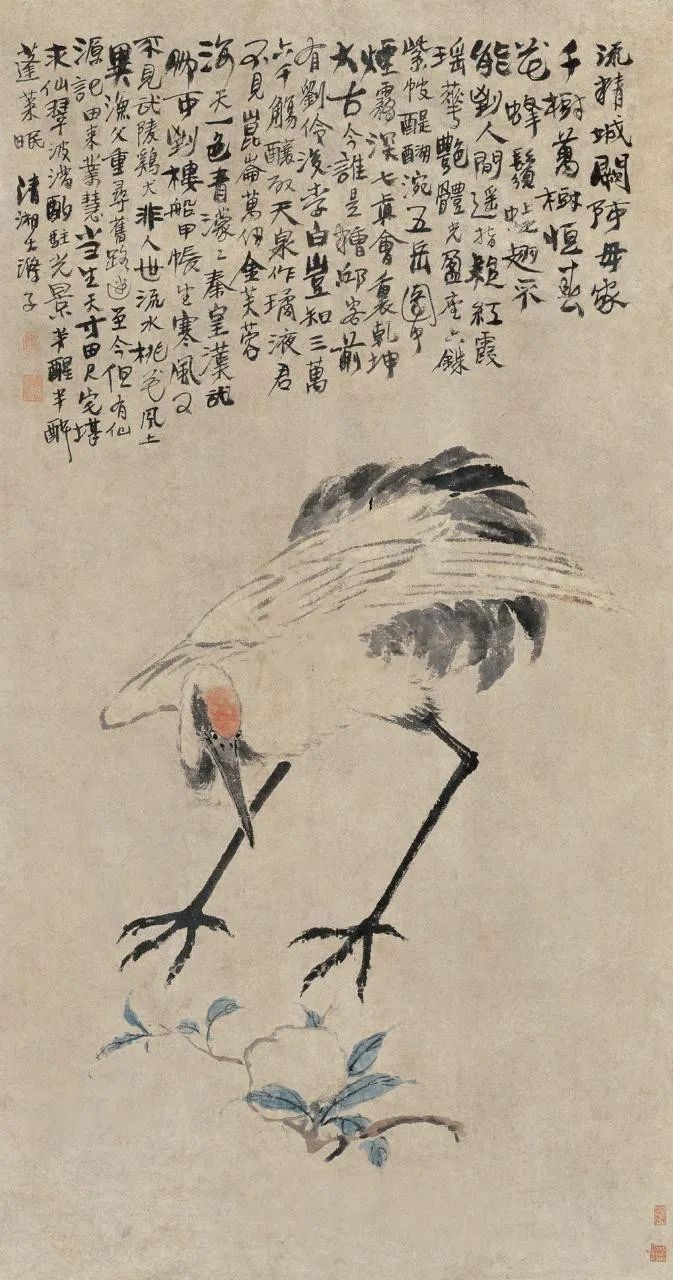 流精城闕母家
千樹萬樹恒春
花蜂鬚翅不
能到人間遥指紅霞
瑶華艷體光盈座六銖
紫帔醍醐五岳圖中
煙霧深七真會裏乾坤
大古今誰是糟邱客前
有劉伶後李白豈知三萬
六千觴釀取天泉作璚液君
不見崑崙萬仞金芙蓉
海天一色青濛〻秦皇漢武
到樓船甲帳生寒風又
不見武陵鷄犬非人世流水桃花風土
異漁父重尋舊路迷至今但有仙
源記田來業慧当生天寸田尺宅堪
求仙翠波滿酌駐光景半醒半醉
蓬萊眠 清湘大滌子